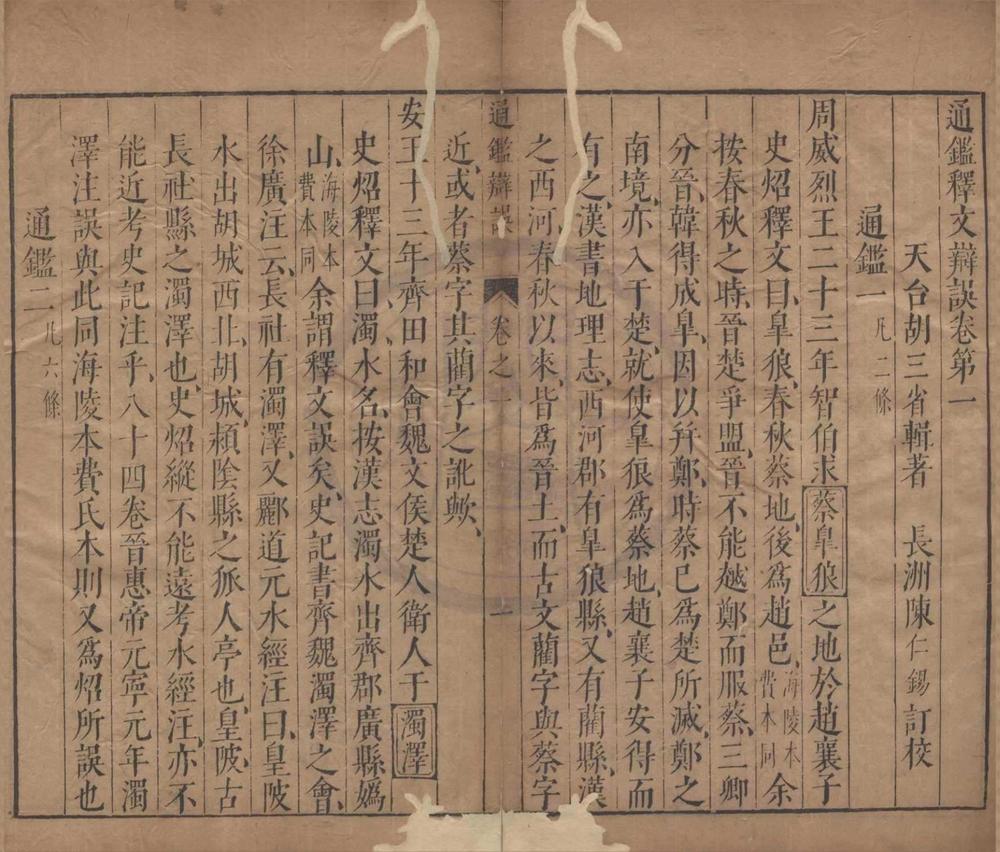 通鑑釋文辯誤卷第一
天台胡三省輯著　長洲陳仁錫訂校
通鑑一凡二條
周威烈王二十三年智伯求蔡皐狼之地於趙襄子
史炤釋文曰皐狼春秋蔡地後爲趙邑海陵本費本同余
按春秋之時晉楚爭盟晉不能越鄭而服蔡三卿
分晉韓得成皐因以幷鄭時蔡已爲楚所滅鄭之
南境亦入于楚就使皐狼爲蔡地趙襄子安得而
有之漢書地理志西河郡有皐狼縣又有藺縣漢
之西河春秋以來皆爲晉土而古文藺字與蔡字
通鑑辯誤　卷之一　一
近或者蔡字其藺字之訛歟
安王十三年齊田和會魏文侯楚人衛人于濁澤
史炤釋文曰濁水名按漢志濁水出齊郡廣縣嬀
山海陵本費本同余謂釋文誤矣史記書齊魏濁澤之會
徐廣注云長社有濁澤又酈道元水經注曰皇陂
水出胡城西北胡城潁陰縣之狐人亭也皇陂古
長社縣之濁澤也史炤縱不能遠考水經注亦不
能近考史記注乎八十四卷晉惠帝元寧元年濁
澤注誤與此同海陵本費氏本則又爲炤所誤也
通鑑二凡六條